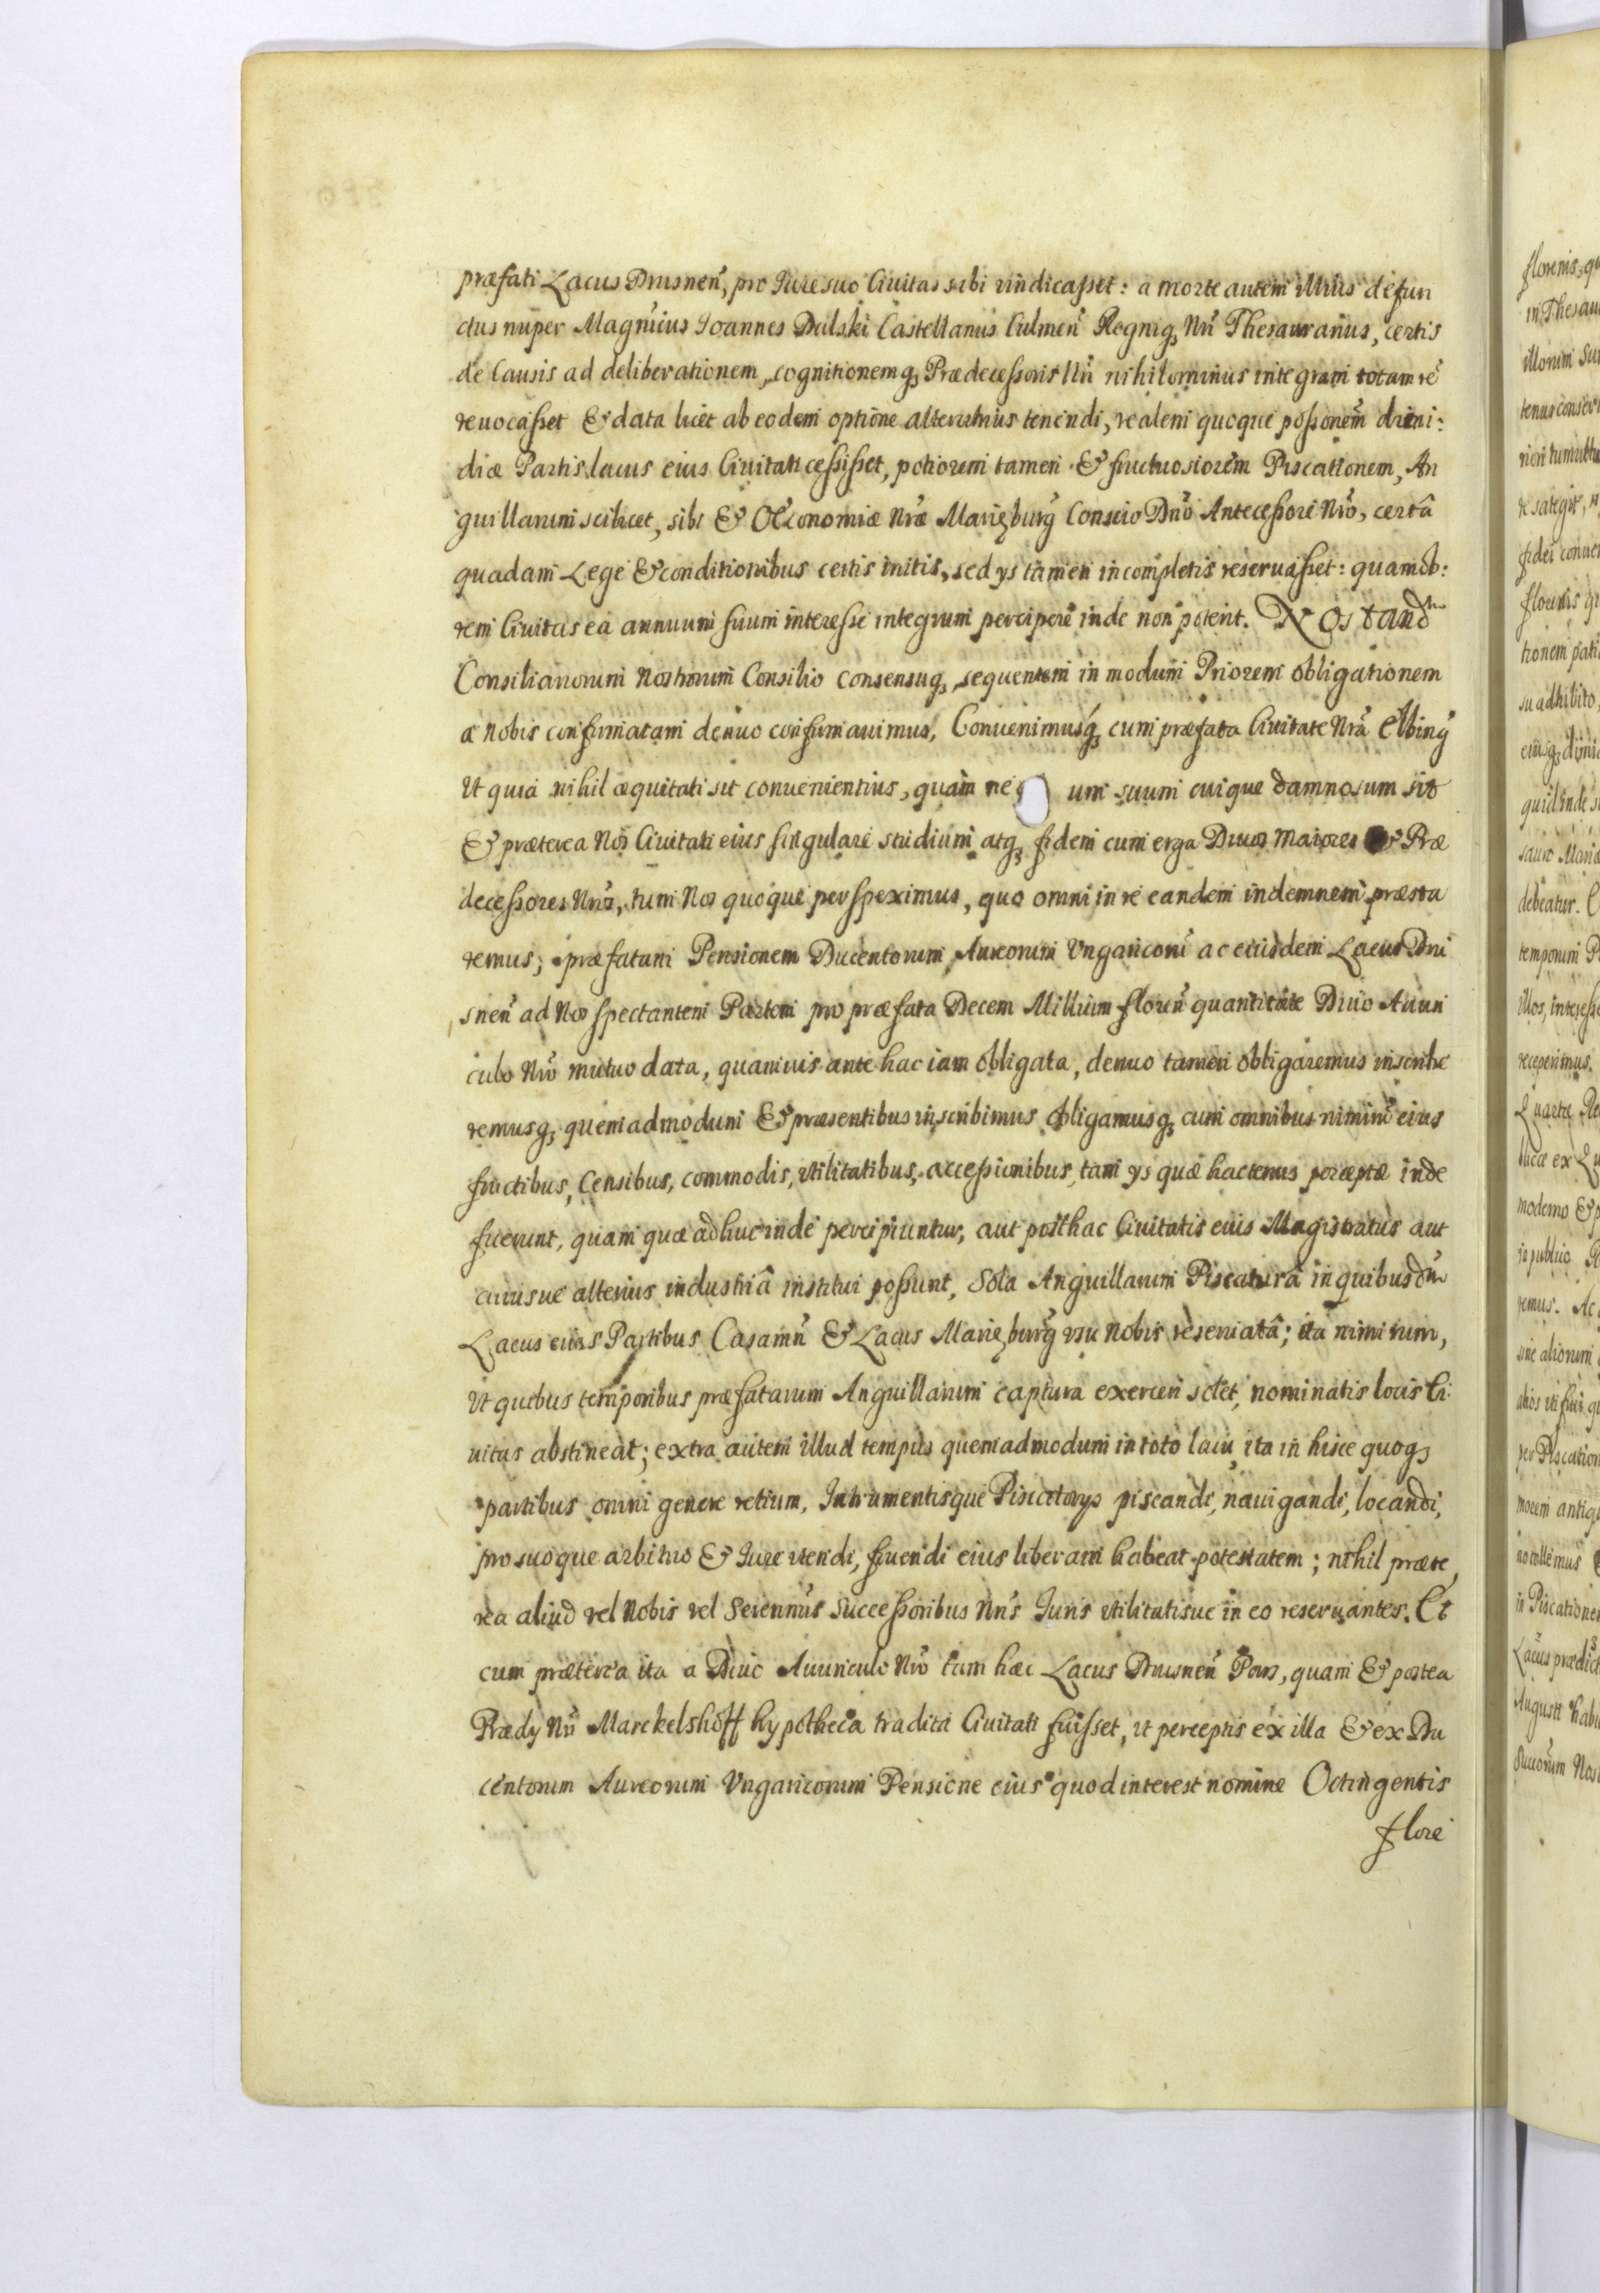 præfati Lacus Drusneñ, pro Jure suo Civitas sibi vindicasset: a morte autem illius defun
ctus nuper Magñicus Joannes Dulski Castellanus Culmeñ Regniq₃ Nri Thesaurarius, certis
de Causis ad deliberationem, cognitionemq₃ Prædecessoris Nri nihilominus integram totam rẽ
revocasset & data licet ab eodem optione alterutrius tenendi, realem quoque possionem dimi:
diæ Partis lacus eius Civitati cessisset, potiorem tamen & fructuosiorem Piscationem, An
guillarum scilicet, sibi & Oeconomiæ Nræ Mariæburg̃ Conscio Dño Antecessore Nrõ, certâ
quadam Lege & conditionibus certis initis, sed ijs tamen incompletis reservasset: quamob:
rem Civitas ea annuum suum interesse integrum percipere inde non poterit. Nos tand̃
Consiliariorum Nostrorum Consilio consensuq₃ sequentem in modum Priorem obligationem
a Nobis confirmatam denuo confirmavimus, Convenimusq₃ cum præfata Civitate Nrã Elbing̃
Ut quia nihil æquitati sit convenientius, quam ne um suum cuique damnosum sit
& præterea Nos Civitati eius singulare studium atq₃ fidem cum erga Divos Maiores & Præ
decessores Nrõs, tum Nos quoque perspeximus, quo omni in re eandem indemnem præsta
remus; præfatam Pensionem Ducentorum Aureorum Ungaricorũ ac eiusdem Lacus Dru
sneñ ad Nos spectantem Partem pro præfata Decem Millium floreñ quantitate Divo Avun
culo Nrõ mutuo data, quamvis ante hac iam obligata, denuo tamen obligaremus inscribe
remusq₃ quemadmodum & præsentibus inscribimus obligamusq₃ cum omnibus nimirũ eius
fructibus, Censibus, commodis, utilitatibus, accessionibus, tam ijs quæ hactenus perceptæ inde
fuerunt, quam quæ adhuc inde percipiuntur, aut posthac Civitatis eius Magistratus aut
cuiusve alterius industriâ institui possunt, Sola Anguillarum Piscaturâ in quibusd̃
Lacus eius Partibus Casamñ & Lacus Mariæburg̃ usu Nobis reservatâ; ita nimirum,
Ut quibus temporibus præfatarum Anguillarum captura exerceri solet, nominatis locis Ci
vitas abstineat; extra autem illud tempus quemadmodum in toto lacu, ita in hisce quoq₃
partibus omni genere retium, Intrumentisque Piscatorijs piscandi, navigandi, locandi,
pro suoque arbitrio & Jure utendi, fruendi eius liberam habeat potestatem; nihil præte
rea aliud vel Nobis vel Sereñmis Successoribus Nris Juris utilitatisve in eo reservantes. Et
cum præterea ita a Divo Avunculo Nrõ tam hæc Lacus Drusneñ Pars, quam & postea
Prædij Nri Marckelshoff hypotheca tradita Civitati fuisset, ut perceptis ex illa & ex Du
centorum Aureorum Ungaricorum Pensione eius quod interest nomine Octingentis
flore